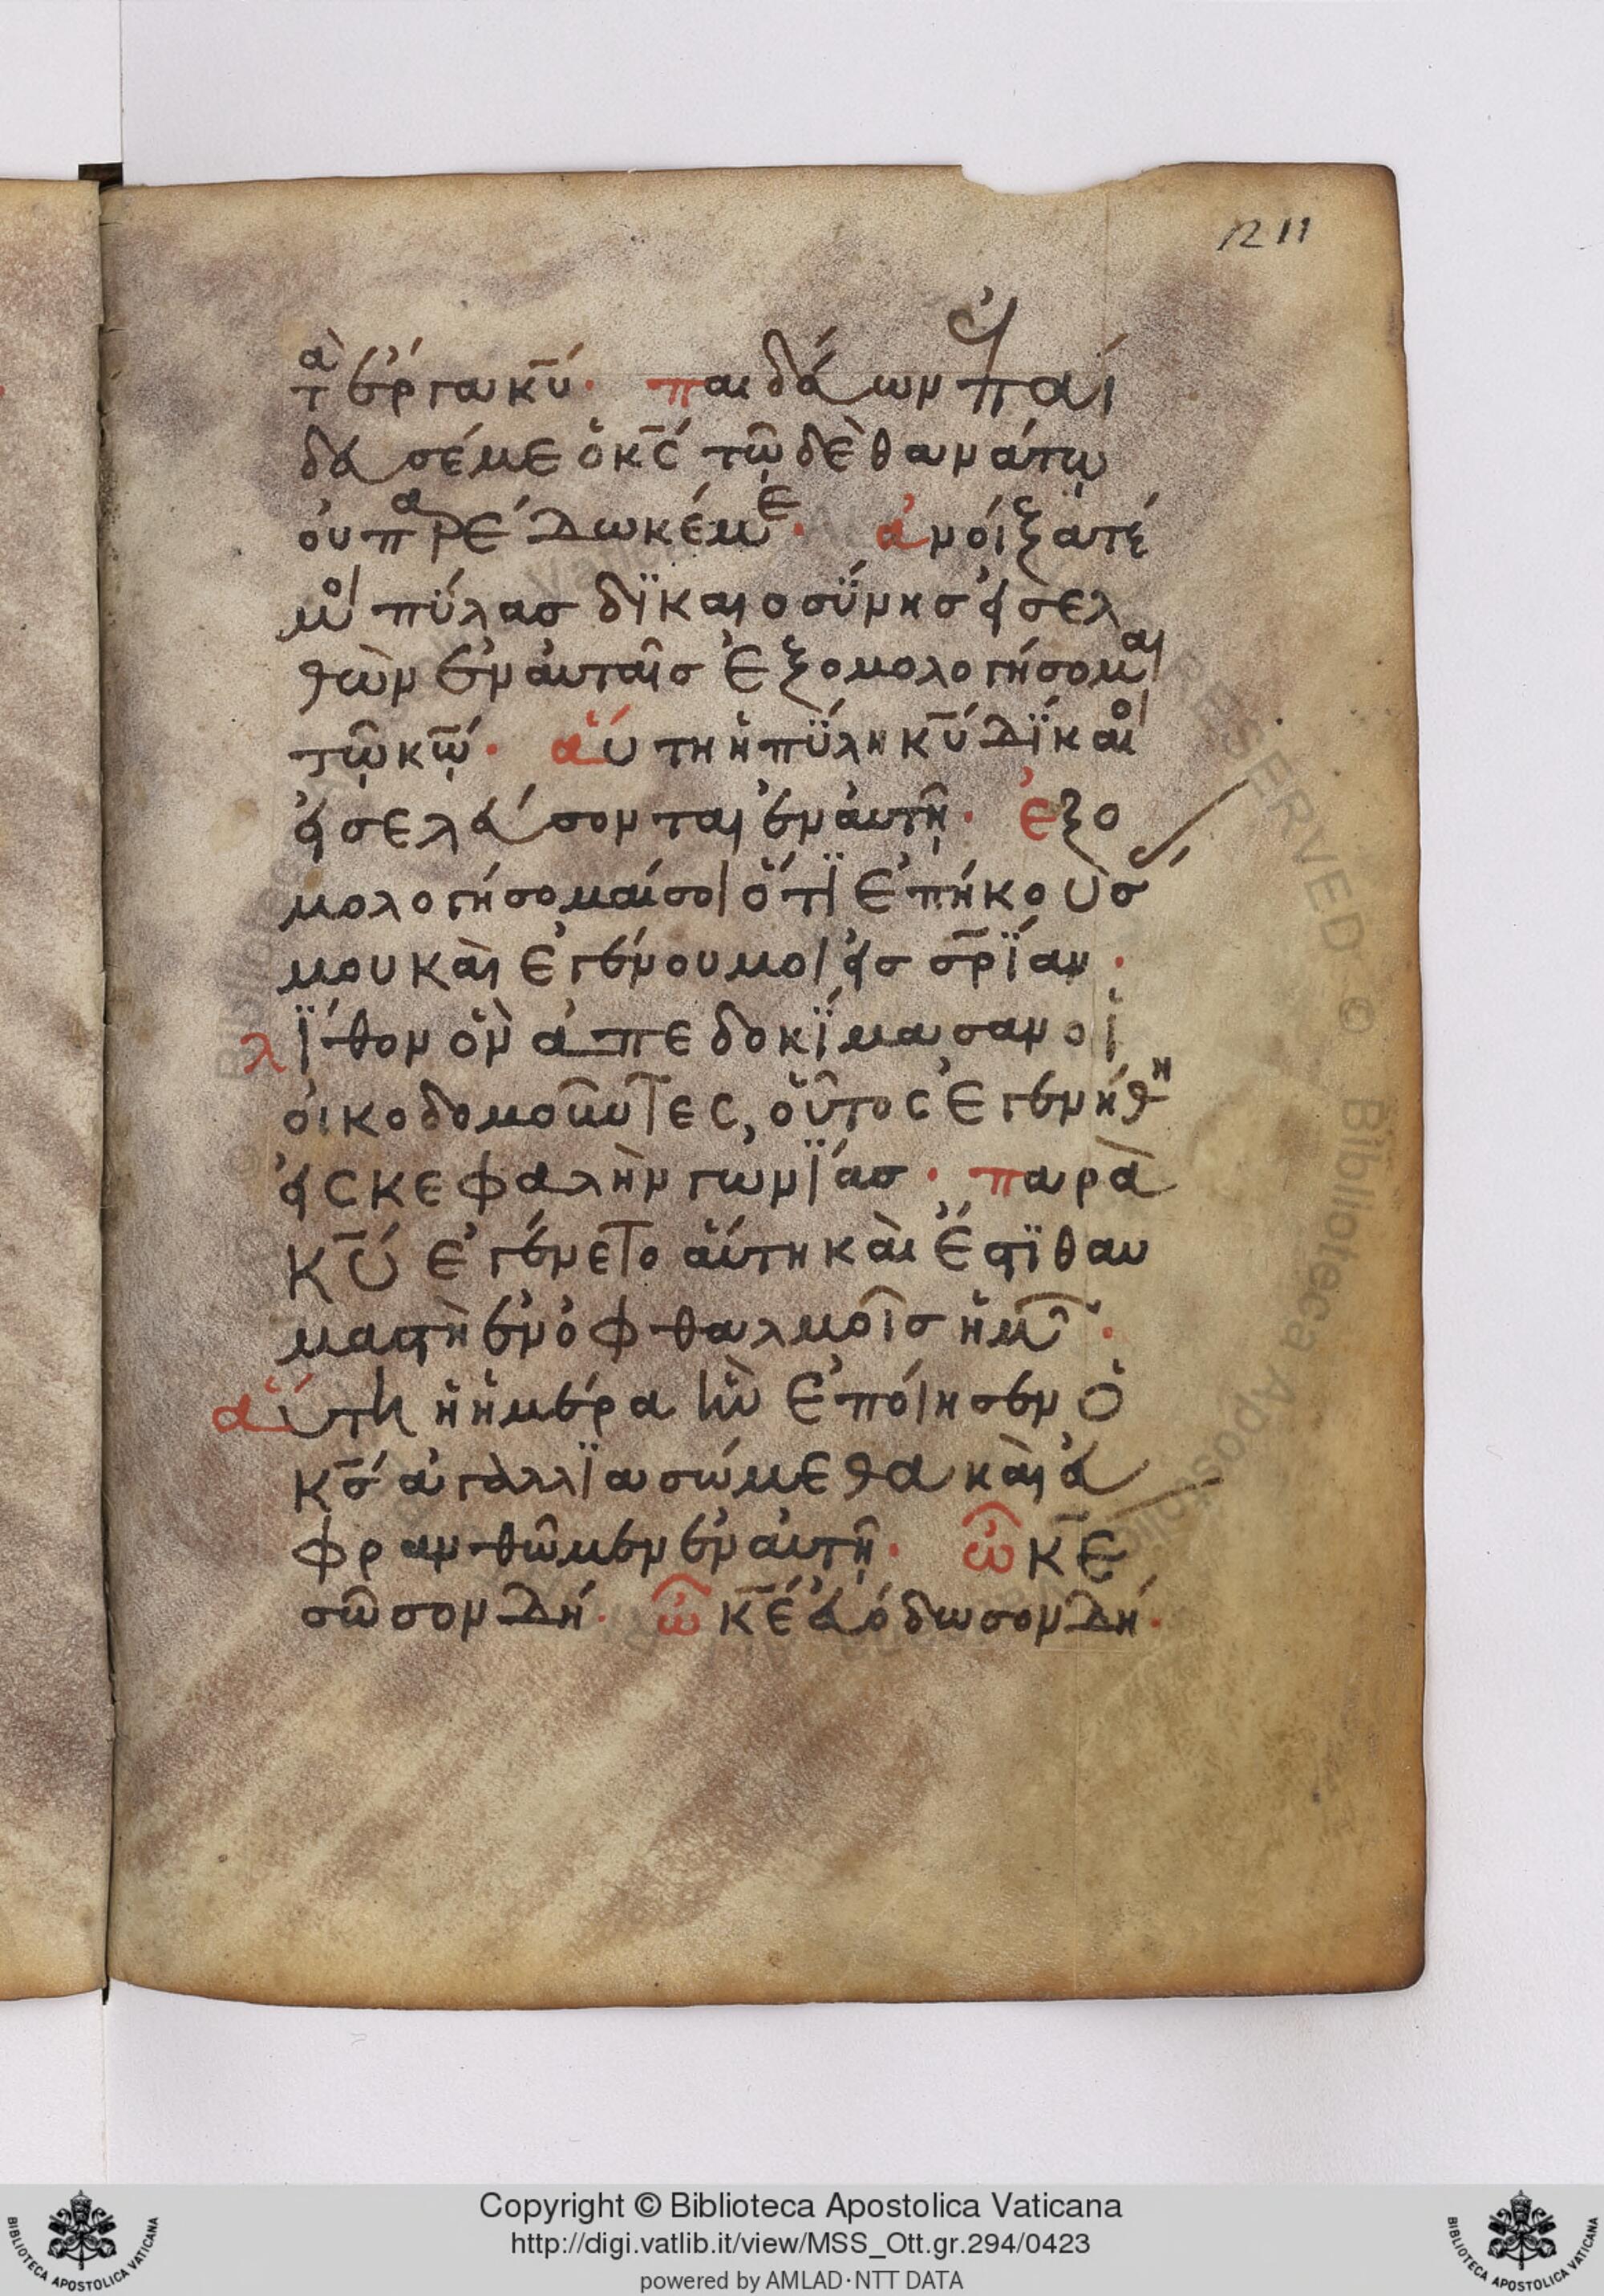 1211
τὰ ἔργα κ̅υ̅· παιδεύων ἐπαί
δευσέ με ὁ κ̅ς̅ τῶ δὲ θανάτω
οὐ παρέδωκέ με· ἀνοίξατέ
μοι πύλας δϊκαιοσύνης εἰσελ
θὼν ἐν αὐταῖς ἐξομολογήσομαι
τῷ κ̅ῳ̅· αὕτη ἡ πύλη κ̅υ̅ δίκαιοι
εἰσελεύσονται ἐν αὐτῇ· ἐξο
μολογήσομαί σοι ὅτι ἐπήκουσάς
μου καὶ ἐγένου μοι εἰς σ̅ρ̅ίαν·
λίθον ὃν ἀπεδοκίμασαν οἱ
οἰκοδομοῦντες, οὗτος ἐγενήθη
εἰς κεφαλὴν γωνίας· παρὰ
κ̅υ̅ ἐγένετο αὕτη καὶ ἔστι θαυ
μαστὴ ἐν ὀφθαλμοῖς ἡμῶν·
αὕτη ἡ ἡμέρα ἣν ἐποίησεν ὁ
κ̅ς̅ ἀγαλλιασώμεθα καὶ εὐ
φρανθῶμεν ἐν αὐτῇ· ὦ κ̅ε̅
σῶσον δή· ὦ κ̅ε̅ εὐόδωσον δή·
Copyright © Biblioteca Apostolica Vaticana
http://digi.vatlib.it/view/MSS_Ott.gr.294/0423
powered by AMLAD·NTT DATA
BIBLIOTECA APOSTOLICA VATICANA
BIBLIOTECA APOSTOLICA VATICANA